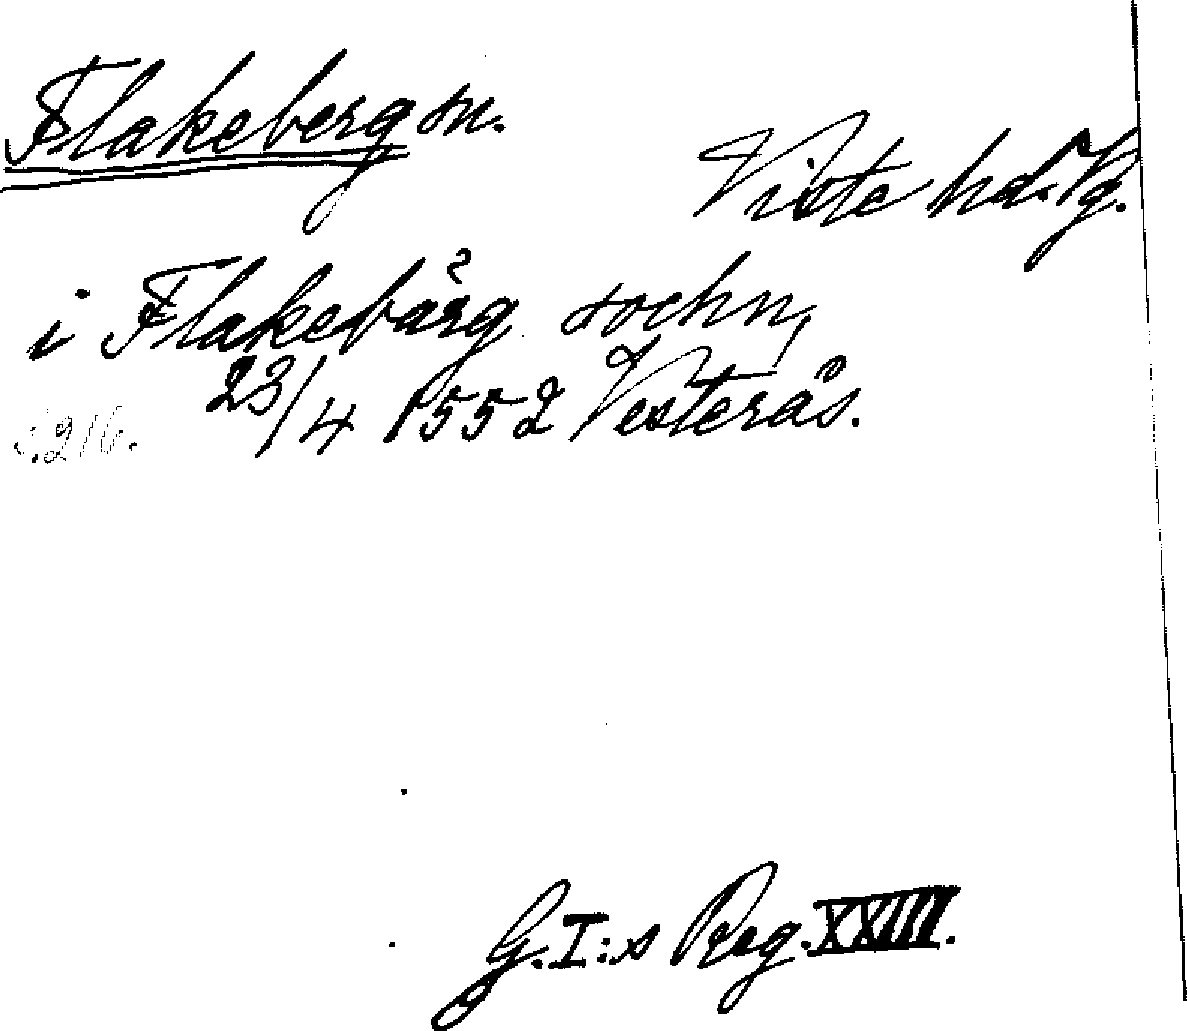 Flakeberg sn.
Viste hd. Vg.
i Flakebårg sochn,
23/4 1552 Vesterås.
s. 216.
G.I:s Reg. XXIII.